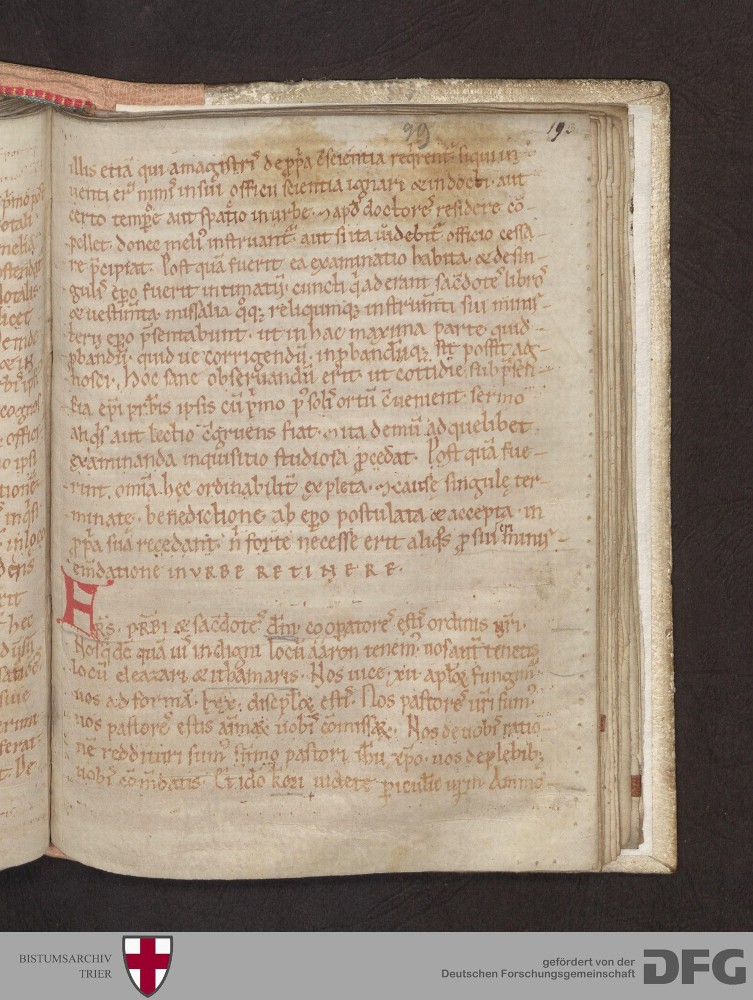 99 19.
illis etiā qui amagistris de ꝓpria c̄scientia reqrent̄. siqui in
uenti er̄ minus insui officii scientia ignari & indocti. aut
certo tempore aut spatio in urbe. & apd̄ doctores residere cō-
pellet. donec meliꝰ instruant̄. aut si ita uidebit̄. officio cessa-
re p̄cipiat. Post quā fuerit ea examinatio habita. & desin-
gulis ep̄o fuerit intimatū. cuncti q̄ aderant sac̄dotes libros
& uestim̄ta. missalia qoq; reliquiumq; instrum̄ti sui minis-
terii ep̄o p̄sentabunt. ut in hac maxima parte quid
ꝓbandū. quid ue corrigendū. inꝓbandūq; sit possit ag-
nosci. Hoc sane obseruandū erit. ut cottidie sub p̄sen-
tia ep̄i p̄sbr̄is ipsis cū p̄mo p̄ solis ortū c̄uenient. sermo
aliqs̄ aut lectio c̄gruens fiat. & ita demū ad quelibet
examinanda inquisitio studiosa p̄cedat. Post quā fue-
rint. om̄ia hec ordinabilit̄ expleta. & cause singulę ter-
minate. benedictione ab ep̄o postulata & accepta. in
ꝓpria sua recedant. n̄ forte necesse erit aliqs̄ ꝓ sui minis-
em̄datione in VRBE RETINERE.
FRS. PRBI & sac̄dotes dn̄i cooꝑatores estis ordinis nr̄i.
Nos qd̄e quā uis indigni locū aaron tenemꝰ. uos aut̄ tenetis
locū eleazari & ithamaris. Nos uice. xii. aplōꝝ fungimꝰ.
uos ad formā. lxx. disciplōꝝ estis. Nos pastores ur̄i sumꝰ.
uos pastores estis animaꝝ uobis cōmissaꝝ. Nos de uobis ratio-
nē reddituri sumꝰ summo pastori ih̄u xp̄o. uos de plebib;
uobis cōm̄datis. Et ido k̄mi uidete periculū ur̄m. Ammo-
BISTUMSARCHIV
TRIER
gefördert von der
Deutschen Forschungsgemeinschaft
DFG